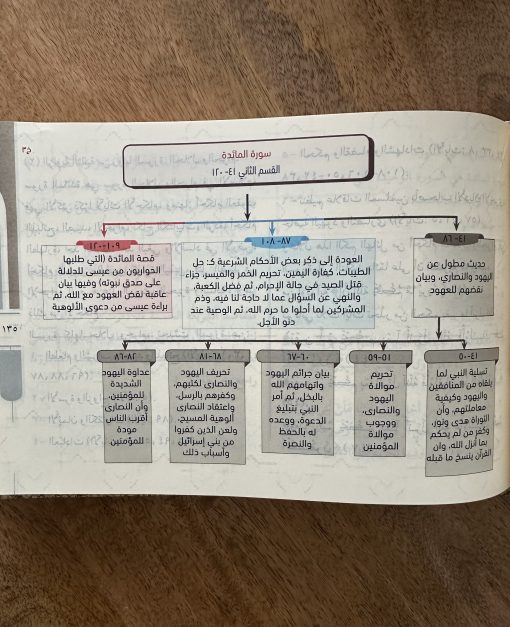 ج٣
سورة المائدة
القسم الثاني ٤١- ١٢٠
٤١-٨٦
حديث مطول عن
اليهود والنصارى، وبيان
نقضهم للعهود
٨٧-١٠٨
العودة إلى ذكر بعض الأحكام الشرعية كـ: حل
الطيبات، كفارة اليمين، تحريم الخمر والميسر، جزاء
قتل الصيد في حالة الإحرام، ثم فضل الكعبة،
والنهي عن السؤال عما لا حاجة لنا فيه، وذم
المشركين لما أحلوا ما حرم الله، ثم الوصية عند
دنو الأجل.
١٠٩-١٢٠
قصة المائدة (التي طلبها
الحواريون من عيسى للدلالة
على صدق نبوته) وفيها بيان
عاقبة نقض العهود مع الله، ثم
براءة عيسى من دعوى الألوهية
٤١-٥٠
تسلية النبي لما
يلقاه من المنافقين
واليهود وكيفية
معاملتهم، وأن
التوراة هدى ونور،
وكفر من لم يحكم
بما أنزل الله، وأن
القرآن ينسخ ما قبله
٥١-٥٩
تحريم
موالاة
اليهود
والنصارى،
ووجوب
موالاة
المؤمنين
٦٠-٦٧
بيان جرائم اليهود
واتهامهم الله
بالبخل، ثم أمر
النبي بتبليغ
الدعوة، ووعده
له بالحفظ
والنصرة
٦٨-٨١
تحريف اليهود
والنصارى لكتبهم،
وكفرهم بالرسل،
واعتقاد النصارى
ألوهية المسيح،
ولعن الذين كفروا
من بني إسرائيل
وأسباب ذلك
٨٢-٨٦
عداوة اليهود
الشديدة
للمؤمنين،
وأن النصارى
أقرب الناس
مودة
للمؤمنين
١٣٥